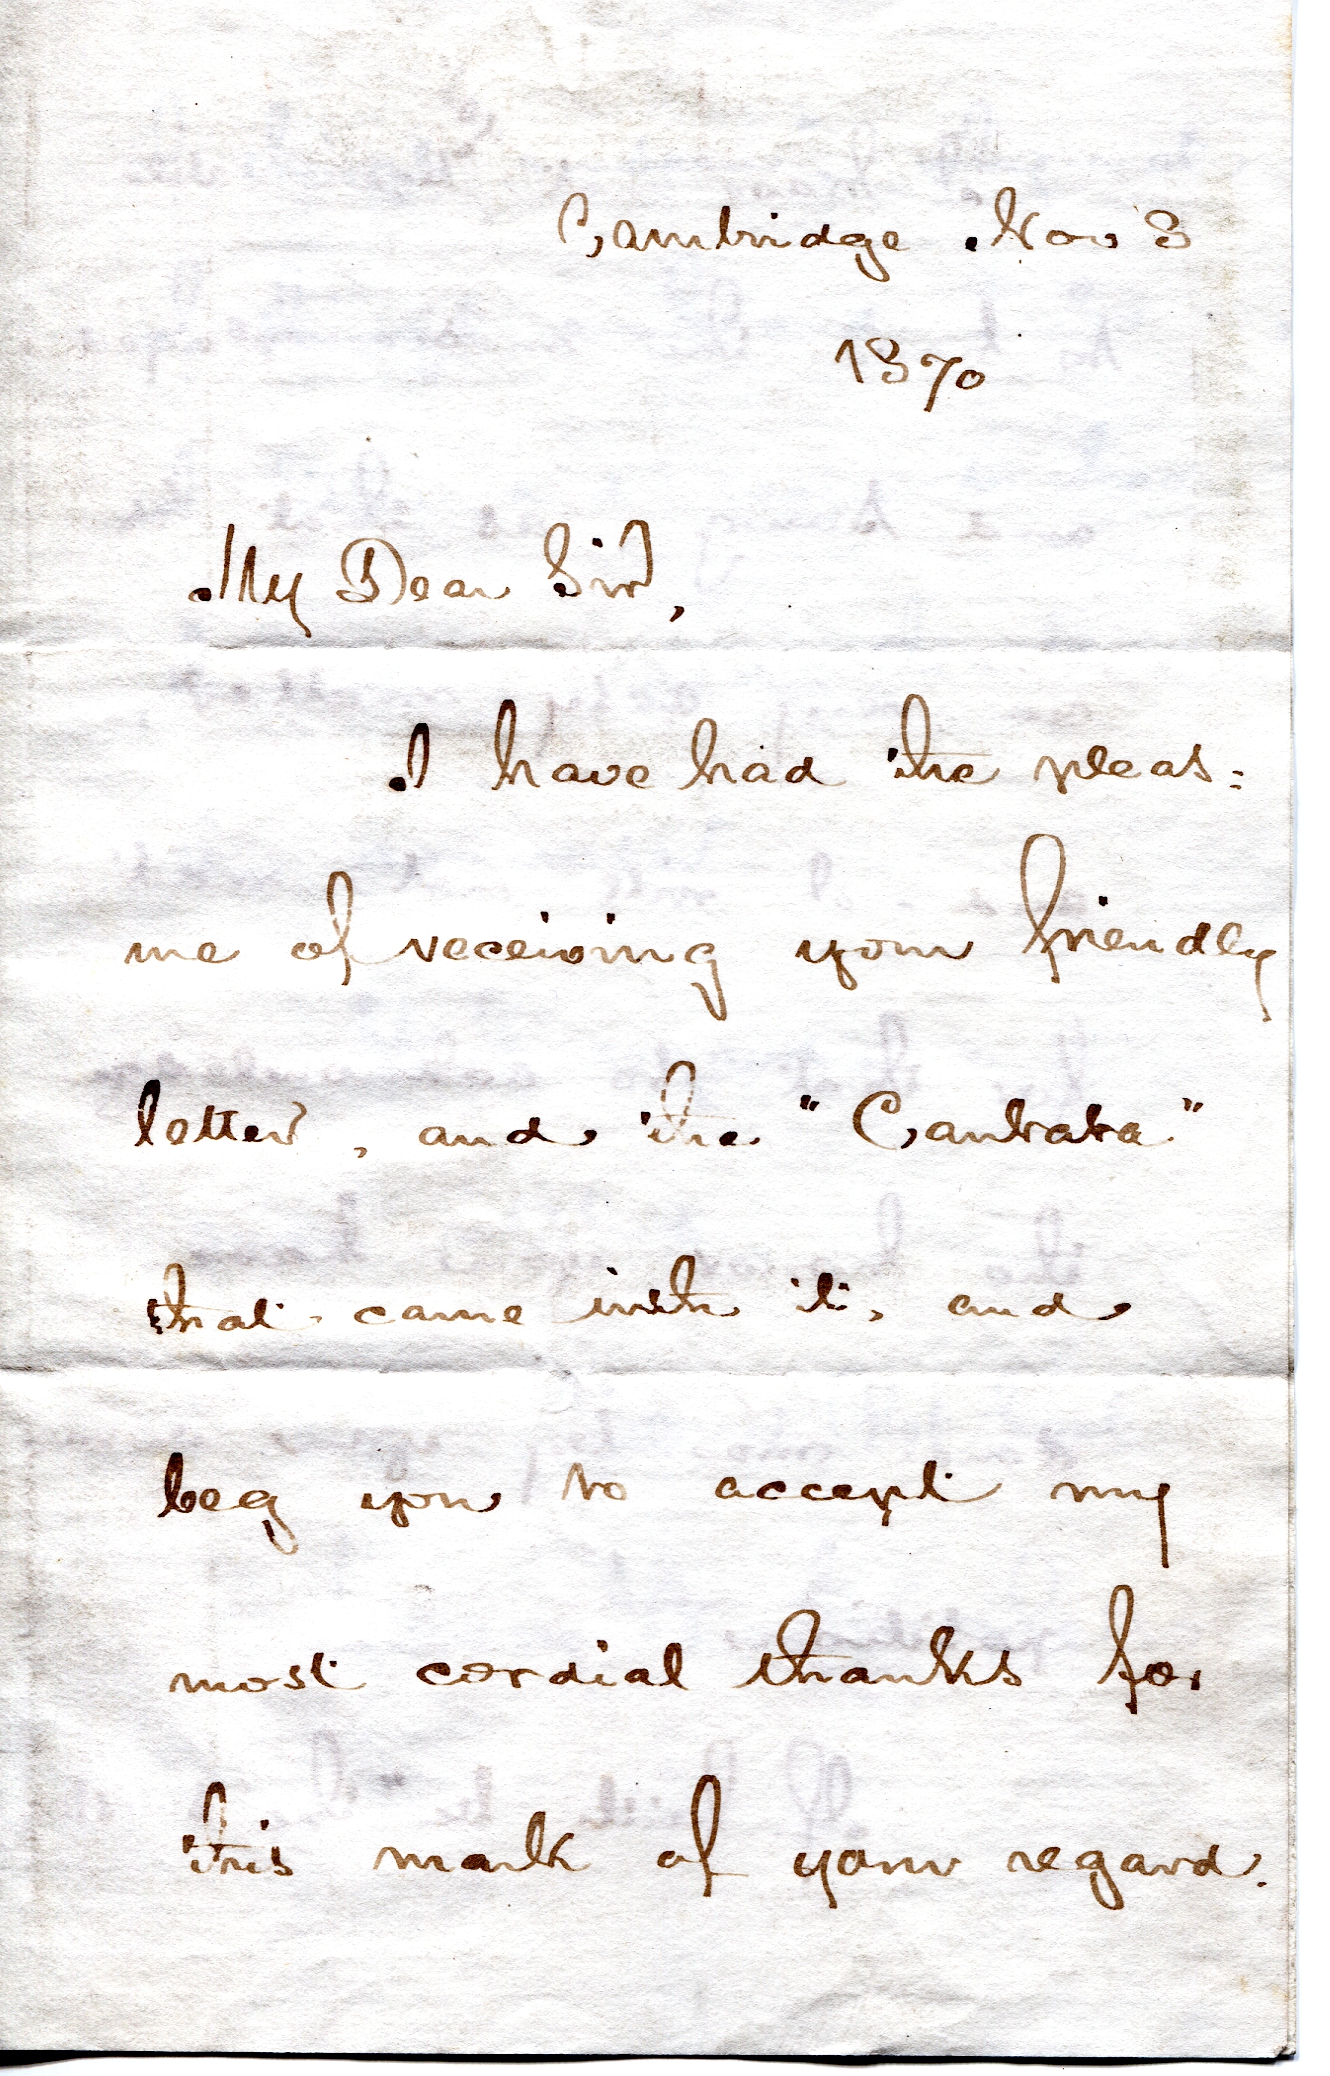 Cambridge Nov 3
1870
My Dear Sir,
I have had the pleas=
ure of receiving your friendly
letter, and the "Cantata"
that came with it, and
beg you to accept my
most cordial thanks for
this mark of your regard.